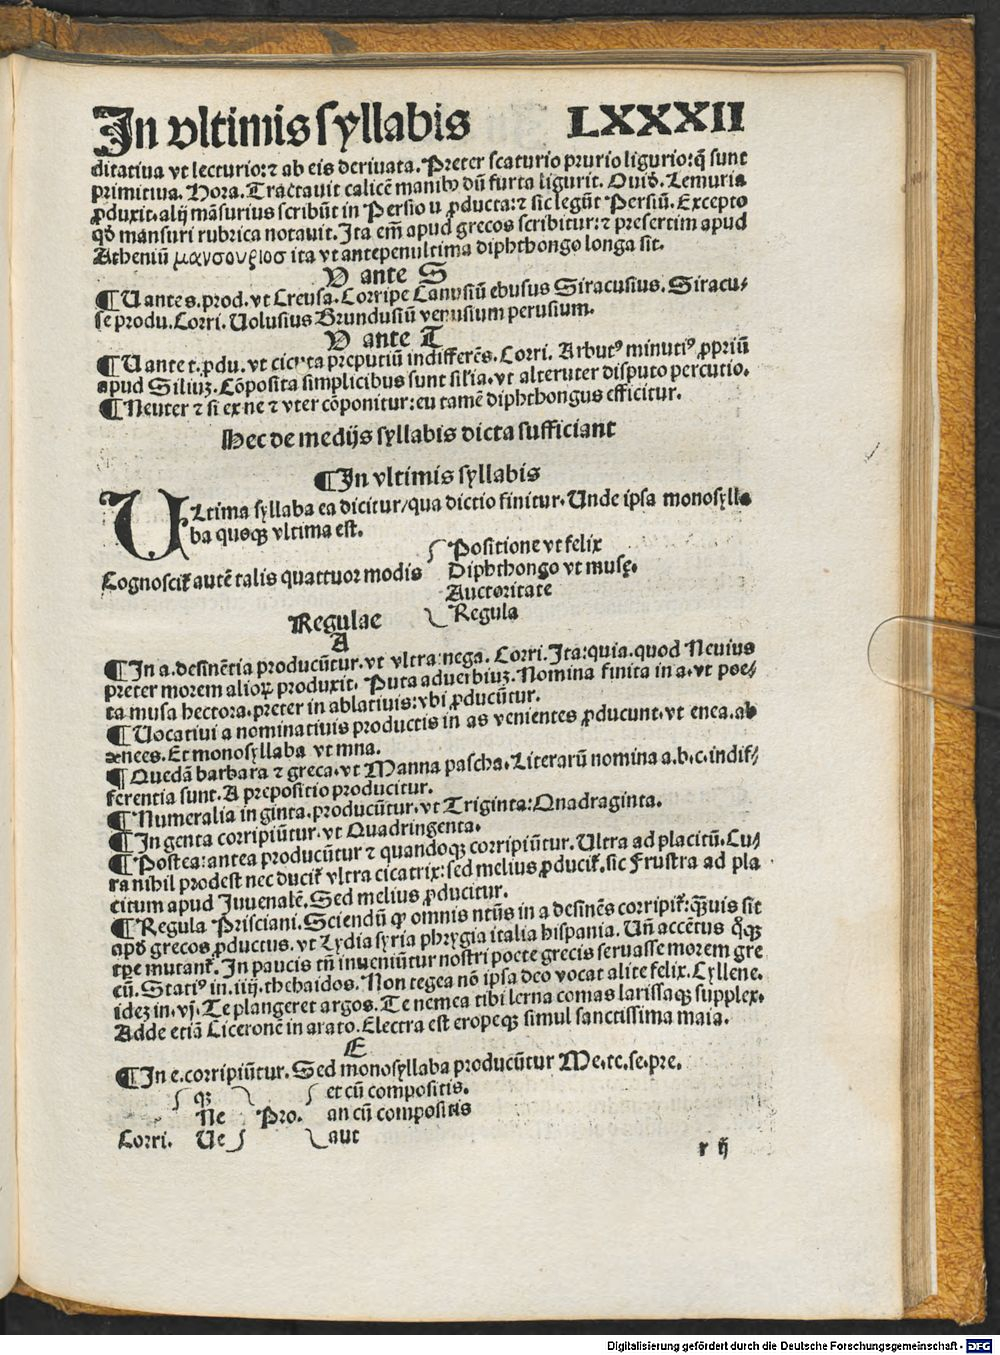 In vltimis syllabis LXXXII
ditatiua vt lecturio:⁊ ab eis deriuata. Preter scaturio prurio ligurio:q̃ sunt
primitiua. Hora. Tractauit calicẽ manibꝰ dũ furta ligurit. Ouid. Lemuria
ꝓduxit. alij mãsurius scribũt in Persio u ꝓducta:⁊ sic legũt Persiũ. Excepto
qđ mansuri rubrica notauit. Ita em̃ apud grecos scribitur:⁊ presertim apud
Atheniũ μαυσουριοσ ita vt antepenultima diphthongo longa sit.
V ante S
¶ U ante s. prod. vt Creusa. Corripe Canusiũ ebusus Siracusius. Siracu/
se produ. Corri. Uolusius Brundusiũ venusium perusium.
V ante T
¶ U ante t. ꝓdu. vt cicuta preputiũ indifferẽs. Corri. Arbutꝰ minutiꝰ ꝓpriũ
apud Siliuꝫ. Cõposita simplicibus sunt sil'ia. vt alteruter disputo percutio.
¶ Neuter ⁊ si ex ne ⁊ vter cõponitur: eu tamẽ diphthongus efficitur.
Hec de medijs syllabis dicta sufficiant
¶ In vltimis syllabis
ULtima syllaba ea dicitur/qua dictio finitur. Unde ipsa monosylla
ba quoqꝫ vltima est.
Positione vt felix
Cognoscit᷑ autẽ talis quattuor modis Diphthongo vt musę.
Auctoritate
Regulae Regula
A
¶ In a. desinẽtia producũtur. vt vltra: nega. Corri. Ita: quia. quod Neuius
preter morem alioꝝ produxit. Puta aduerbiuꝫ. Nomina finita in a. vt poe/
ta musa hectora. preter in ablatiuis: vbi ꝓducũtur.
¶ Uocatiui a nominatiuis productis in as venientes ꝓducunt. vt enea. ab
ænees. Et monosyllaba vt mna.
¶ Quedã barbara ⁊ greca. vt Manna pascha. Literarũ nomina a.b.c. indif/
ferentia sunt. A prepositio producitur.
¶ Numeralia in ginta. producũtur. vt Triginta: Qnadraginta.
¶ In genta corripiũtur. vt Quadringenta.
¶ Postea: antea producũtur ⁊ quandoqꝫ corripiũtur. Ultra ad placitũ. Cu/
ra nihil prodest nec ducit᷑ vltra cicatrix: sed melius ꝓducit᷑. sic Frustra ad pla
citum apud Juuenalẽ. Sed melius ꝓducitur.
¶ Regula Prisciani. Sciendũ ꝙ omnis ntũs in a desinẽs corripit᷑: q̃uis sit
apđ grecos ꝓductus. vt Lydia syria phrygia italia hispania. Uñ accẽtus qͦqꝫ
tpe mutant᷑. In paucis tñ inueniũtur nostri poete grecis seruasse morem gre
cũ. Statiꝰ in .iiij. thebaidos. Non tegea nõ ipsa deo vocat alite felix. Cyllene.
idez in .vj. Te plangeret argos. Te nemea tibi lerna comas larissaqꝫ supplex.
Adde etiã Ciceronẽ in arato. Electra est eropeqꝫ simul sanctissima maia.
E
¶ In e. corripiũtur. Sed monosyllaba producũtur Me. te. se. pre.
qꝫ et cũ compositis.
Ne Pro. an cũ compositis
Corri. Ue aut
r ij
Digitalisierung gefördert durch die Deutsche Forschungsgemeinschaft - DFG